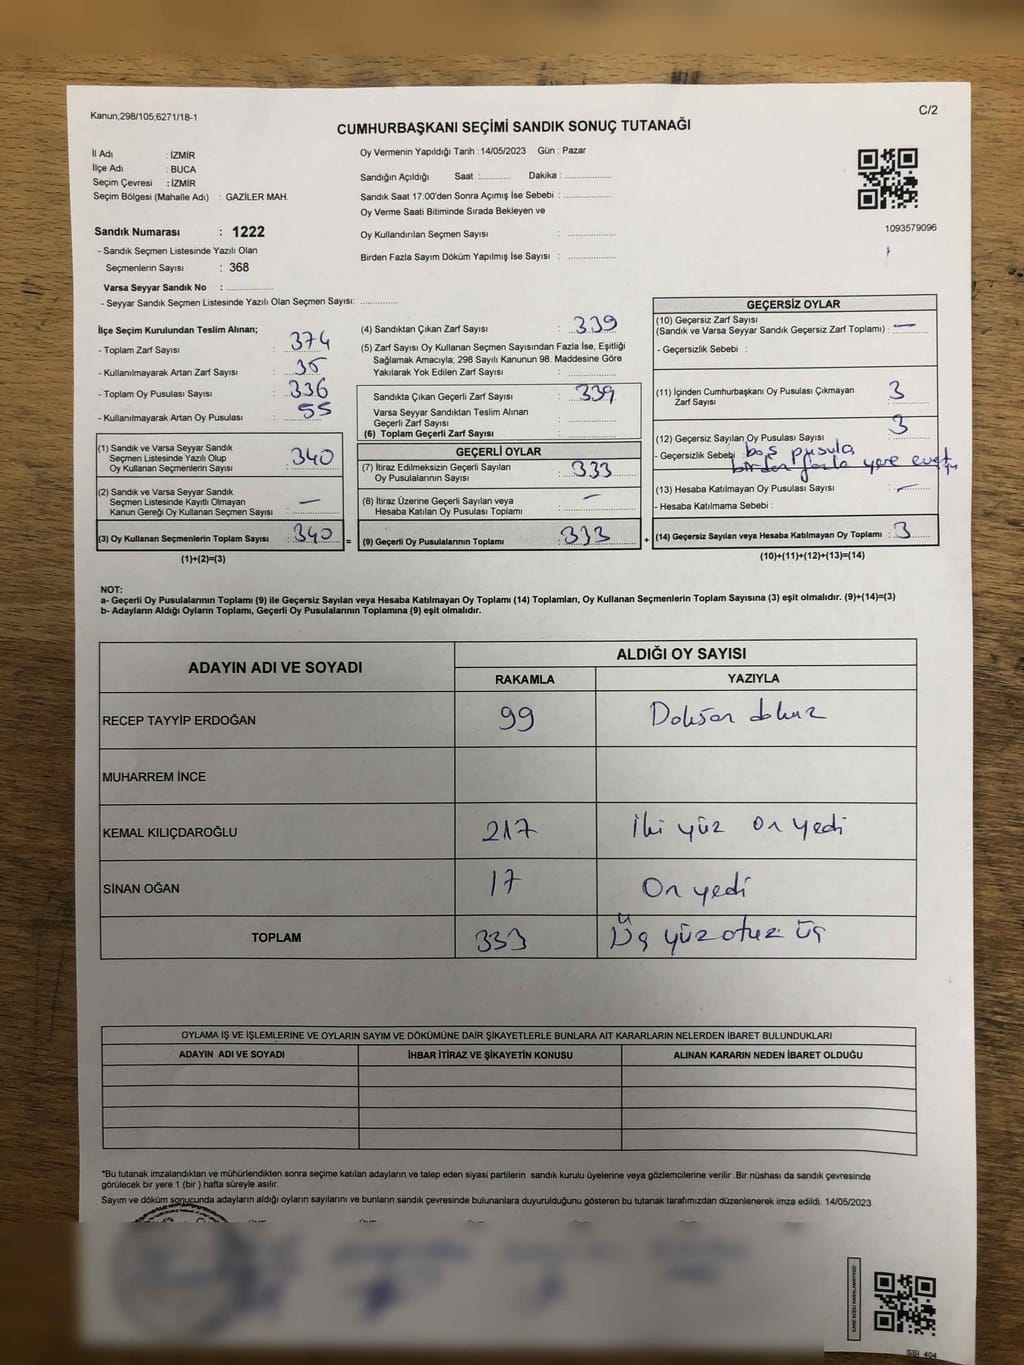 Kanun;298/105;6271/18-1
C/2
CUMHURBAŞKANI SEÇİMİ SANDIK SONUÇ TUTANAĞI
İl Adı : İZMİR
İlçe Adı : BUCA
Seçim Çevresi : İZMİR
Seçim Bölgesi (Mahalle Adı) : GAZİLER MAH.
Sandık Numarası : 1222
- Sandık Seçmen Listesinde Yazılı Olan
Seçmenlerin Sayısı : 368
Varsa Seyyar Sandık No : ................
- Seyyar Sandık Seçmen Listesinde Yazılı Olan Seçmen Sayısı: .............
Oy Vermenin Yapıldığı Tarih : 14/05/2023 Gün : Pazar
Sandığın Açıldığı Saat :.......... Dakika : ................
Sandık Saat 17:00'den Sonra Açımış İse Sebebi : ................
Oy Verme Saati Bitiminde Sırada Bekleyen ve
Oy Kullandırılan Seçmen Sayısı : ................
Birden Fazla Sayım Döküm Yapılmış İse Sayısı : ................
1093579096
İlçe Seçim Kurulundan Teslim Alınan;
- Toplam Zarf Sayısı : 374
- Kullanılmayarak Artan Zarf Sayısı : 35
- Toplam Oy Pusulası Sayısı : 336
- Kullanılmayarak Artan Oy Pusulası : 55
(1) Sandık ve Varsa Seyyar Sandık
Seçmen Listesinde Yazılı Olup
Oy Kullanan Seçmenlerin Sayısı : 340
(2) Sandık ve Varsa Seyyar Sandık
Seçmen Listesinde Kayıtlı Olmayan
Kanun Gereği Oy Kullanan Seçmen Sayısı : —
(3) Oy Kullanan Seçmenlerin Toplam Sayısı : 340 =
(1)+(2)=(3)
(4) Sandıktan Çıkan Zarf Sayısı : 339
(5) Zarf Sayısı Oy Kullanan Seçmen Sayısından Fazla İse, Eşitliği
Sağlamak Amacıyla; 298 Sayılı Kanunun 98. Maddesine Göre
Yakılarak Yok Edilen Zarf Sayısı : ............
Sandıkta Çıkan Geçerli Zarf Sayısı : 339
Varsa Seyyar Sandıktan Teslim Alınan
Geçerli Zarf Sayısı : ............
(6) Toplam Geçerli Zarf Sayısı : ............
GEÇERLİ OYLAR
(7) İtiraz Edilmeksizin Geçerli Sayılan
Oy Pusulalarının Sayısı : 333
(8) İtiraz Üzerine Geçerli Sayılan veya
Hesaba Katılan Oy Pusulası Toplamı : —
(9) Geçerli Oy Pusulalarının Toplamı : 333 +
GEÇERSİZ OYLAR
(10) Geçersiz Zarf Sayısı
(Sandık ve Varsa Seyyar Sandık Geçersiz Zarf Toplamı) : —
- Geçersizlik Sebebi :
(11) İçinden Cumhurbaşkanı Oy Pusulası Çıkmayan
Zarf Sayısı : 3
(12) Geçersiz Sayılan Oy Pusulası Sayısı : 3
- Geçersizlik Sebebi : boş pusula,
birden fazla yere evet
(13) Hesaba Katılmayan Oy Pusulası Sayısı : —
- Hesaba Katılmama Sebebi :
(14) Geçersiz Sayılan veya Hesaba Katılmayan Oy Toplamı : 3
(10)+(11)+(12)+(13)=(14)
NOT:
a- Geçerli Oy Pusulalarının Toplamı (9) ile Geçersiz Sayılan veya Hesaba Katılmayan Oy Toplamı (14) Toplamları, Oy Kullanan Seçmenlerin Toplam Sayısına (3) eşit olmalıdır. (9)+(14)=(3)
b- Adayların Aldığı Oyların Toplamı, Geçerli Oy Pusulalarının Toplamına (9) eşit olmalıdır.
ADAYIN ADI VE SOYADI
ALDIĞI OY SAYISI
RAKAMLA YAZIYLA
RECEP TAYYİP ERDOĞAN 99 Doksan dokuz
MUHARREM İNCE
KEMAL KILIÇDAROĞLU 217 İki yüz on yedi
SİNAN OĞAN 17 On yedi
TOPLAM 333 Üç yüz otuz üç
OYLAMA İŞ VE İŞLEMLERİNE VE OYLARIN SAYIM VE DÖKÜMÜNE DAİR ŞİKAYETLERLE BUNLARA AİT KARARLARIN NELERDEN İBARET BULUNDUKLARI
ADAYIN ADI VE SOYADI İHBAR İTİRAZ VE ŞİKAYETİN KONUSU ALINAN KARARIN NEDEN İBARET OLDUĞU
*Bu tutanak imzalandıktan ve mühürlendikten sonra seçime katılan adayların ve talep eden siyasi partilerin sandık kurulu üyelerine veya gözlemcilerine verilir .Bir nüshası da sandık çevresinde
görülecek bir yere 1 (bir ) hafta süreyle asılır.
Sayım ve döküm sonucunda adayların aldığı oyların sayılarını ve bunların sandık çevresinde bulunanlara duyurulduğunu gösteren bu tutanak tarafımızdan düzenlenerek imza edildi. 14/05/2023
KARE KODU KARALAMAYINIZ!
SSİ_404